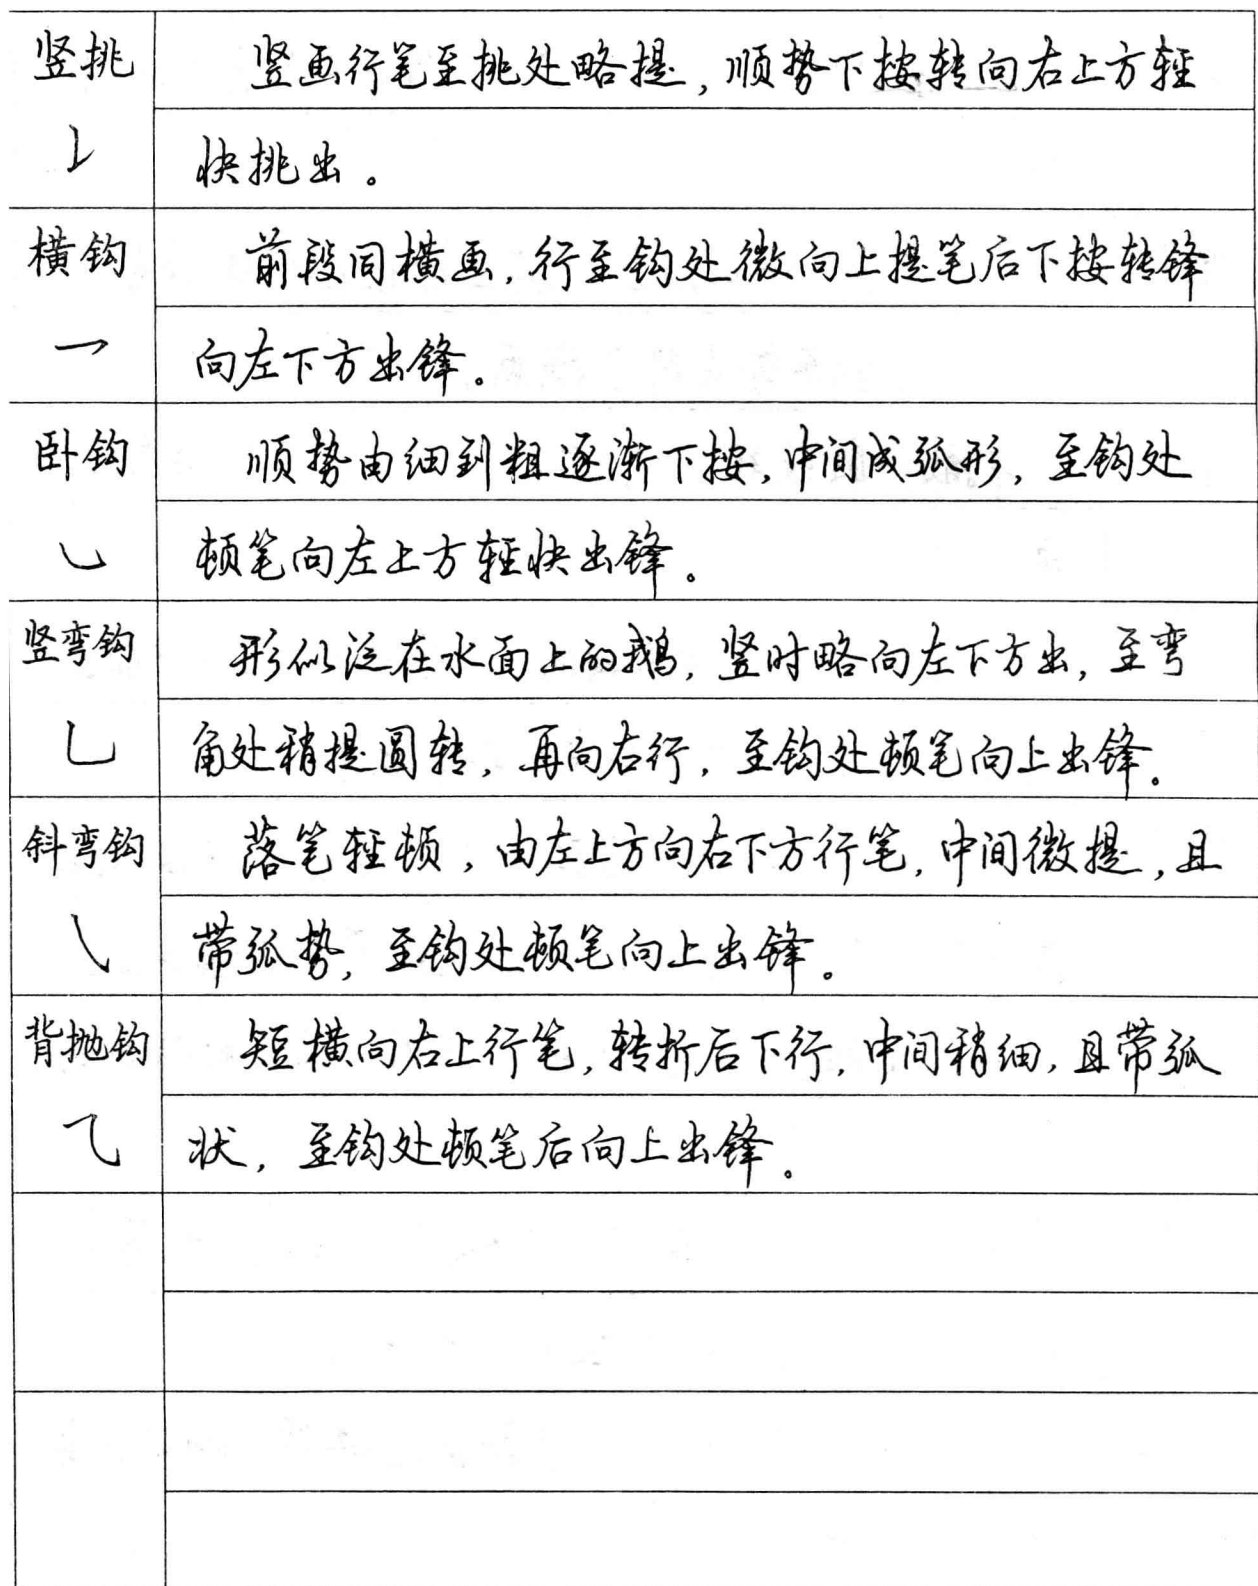 竖挑 竖画行笔至挑处略提,顺势下按转向右上方轻
快挑出。
横钩 前段同横画,行至钩处微向上提笔后下按转锋
向左下方出锋。
卧钩 顺势由细到粗逐渐下按,中间成弧形,至钩处
顿笔向左上方轻快出锋。
竖弯钩 形似泛在水面上的鹅,竖时略向左下方出,至弯
角处稍提圆转,再向右行,至钩处顿笔向上出锋。
斜弯钩 落笔轻顿,由左上方向右下方行笔,中间微提,且
带弧势,至钩处顿笔向上出锋。
背抛钩 短横向右上行笔,转折后下行,中间稍细,且带弧
状,至钩处顿笔后向上出锋。